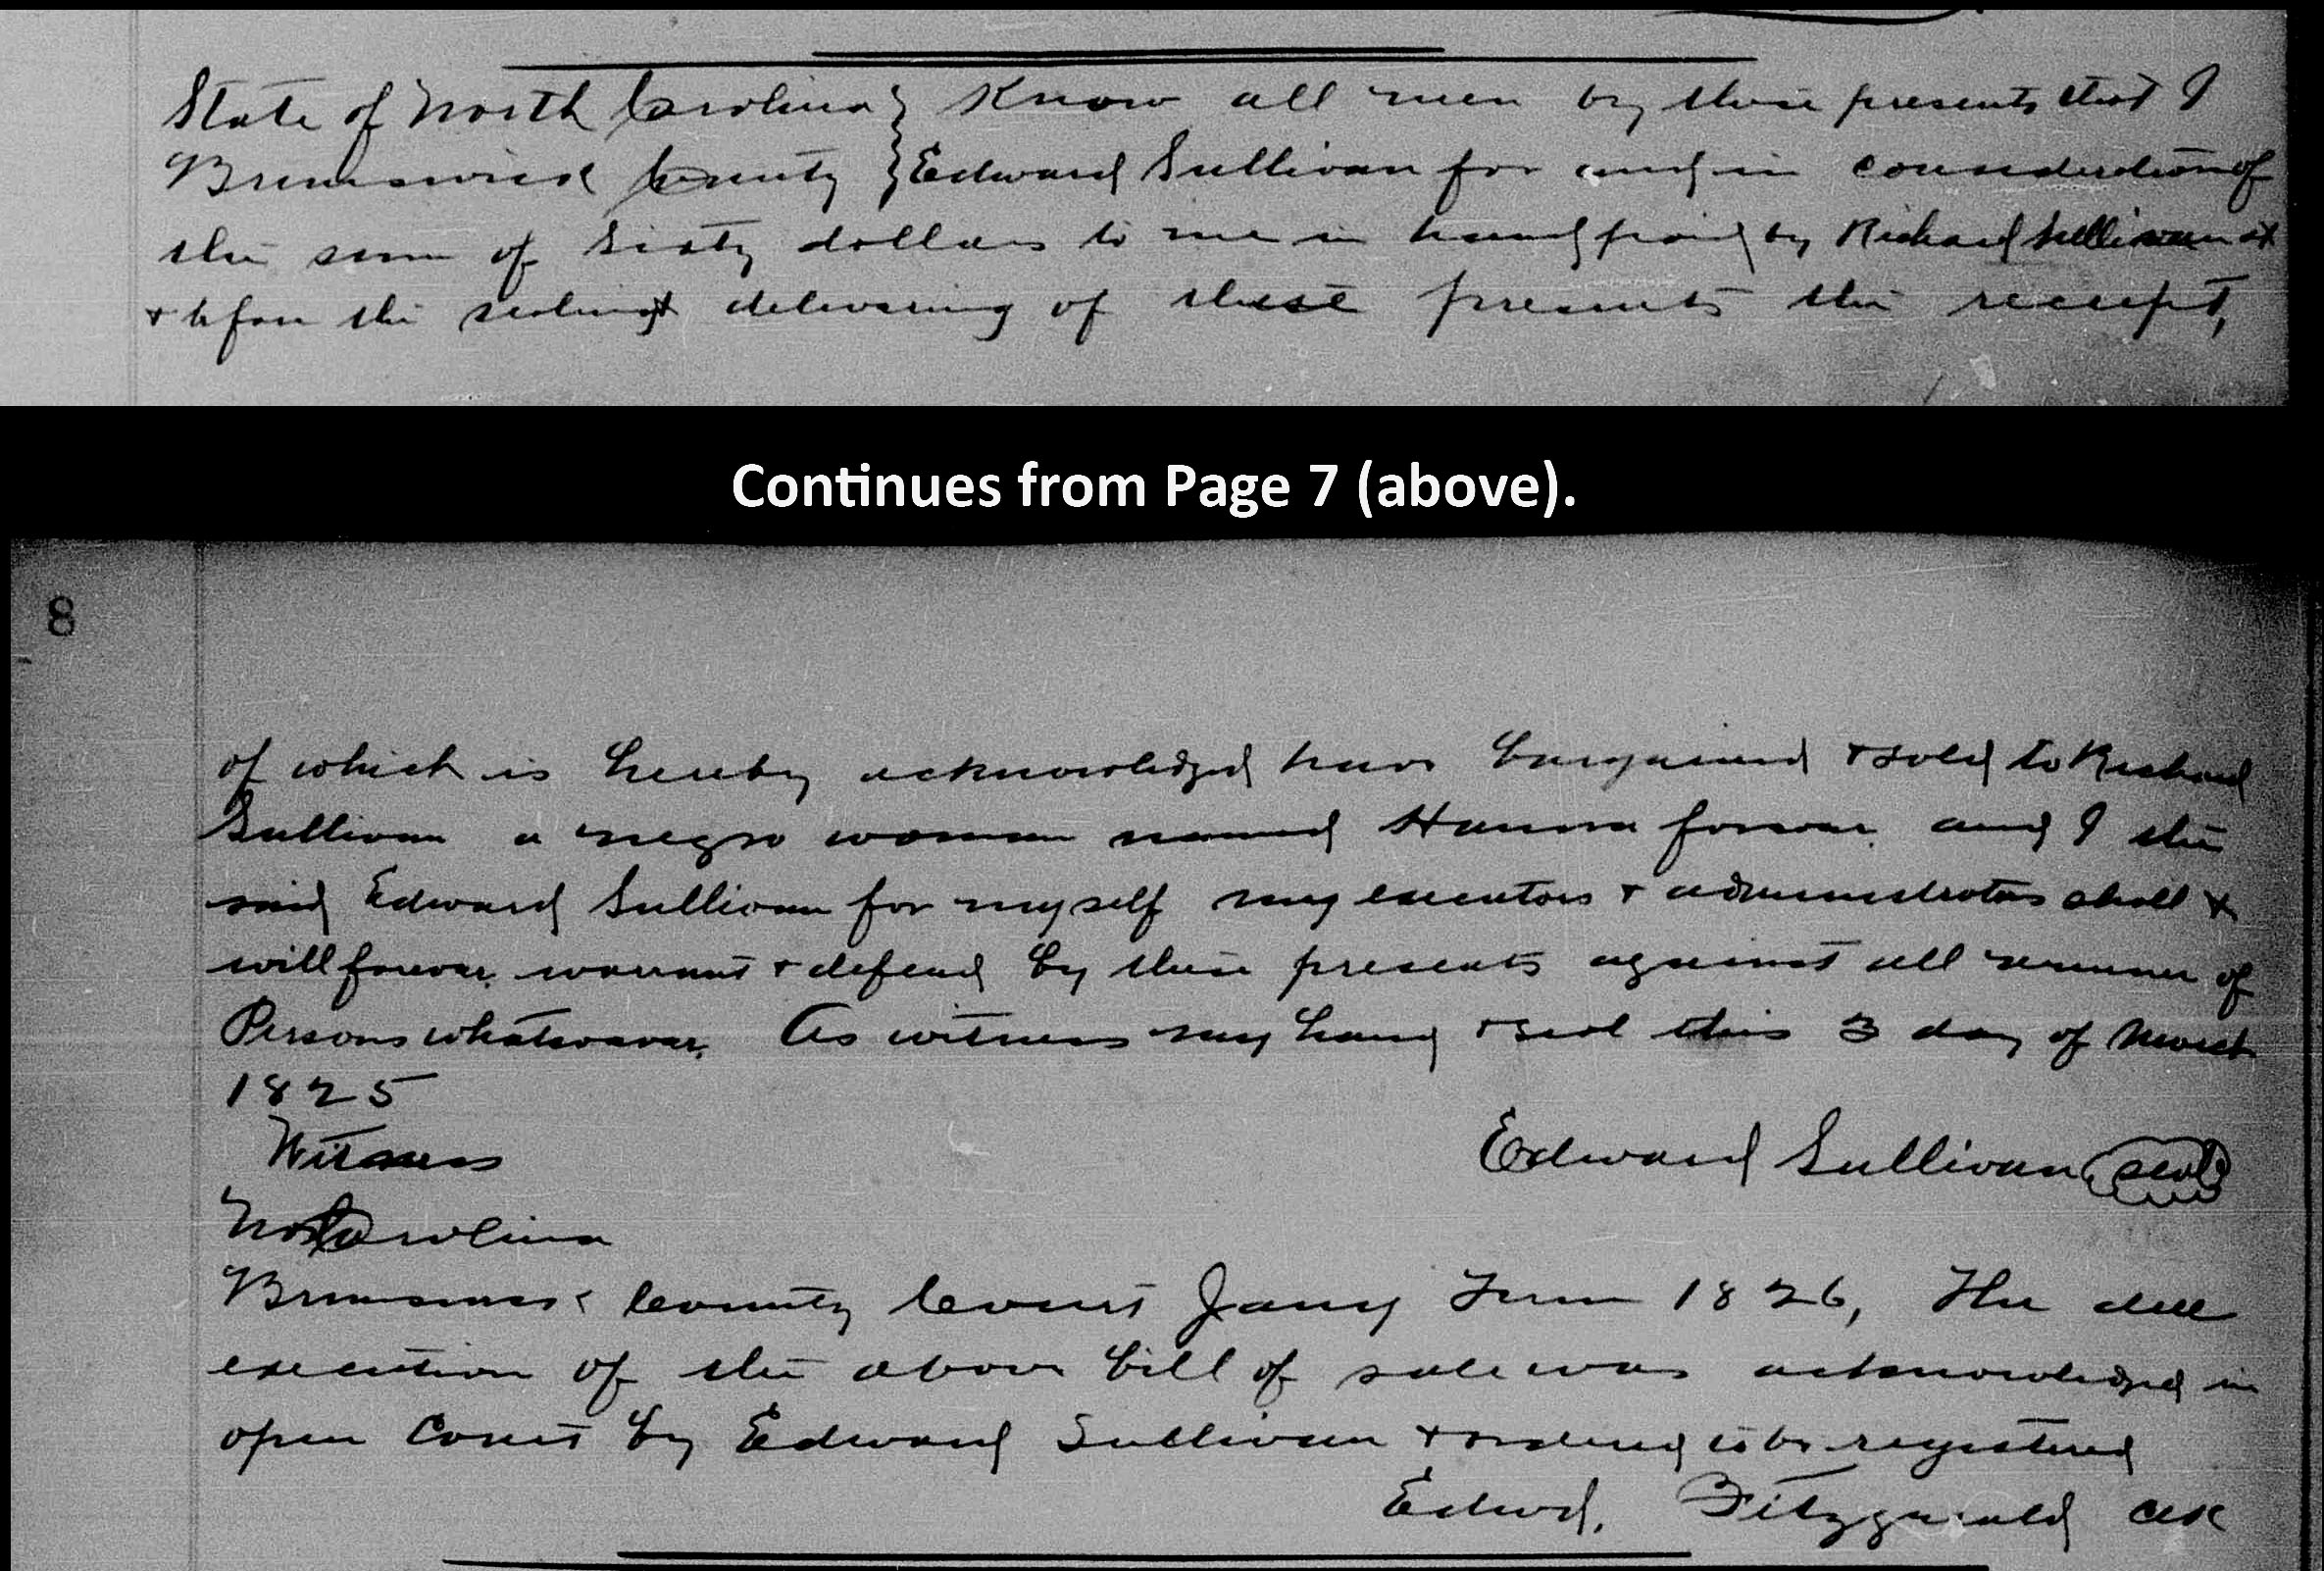 State of North Carolina } Know all men by these presents that I
Brunswick County } Edward Sullivan for and in consideration of
the sum of Sixty dollars to me in hand paid by Richard Sullivan at
+ before the sealing + delivering of these presents the receipt,
Continues from Page 7 (above).
8
of which is hereby acknowledged have bargained + sold to Richard
Sullivan a negro woman named Hanna forever and I the
said Edward Sullivan for myself my executors + administrators shall +
will forever warrant + defend by these presents against all manner of
Persons whatsoever. As witness my hand + seal this 3 day of March
1825
Witness
Edward Sullivan seal
No Carolina
Brunswick County Court Jany Term 1826, The due
execution of the above bill of sale was acknowledged in
open Court by Edward Sullivan + ordered to be registered
Edwd. Fitzgerald Clk